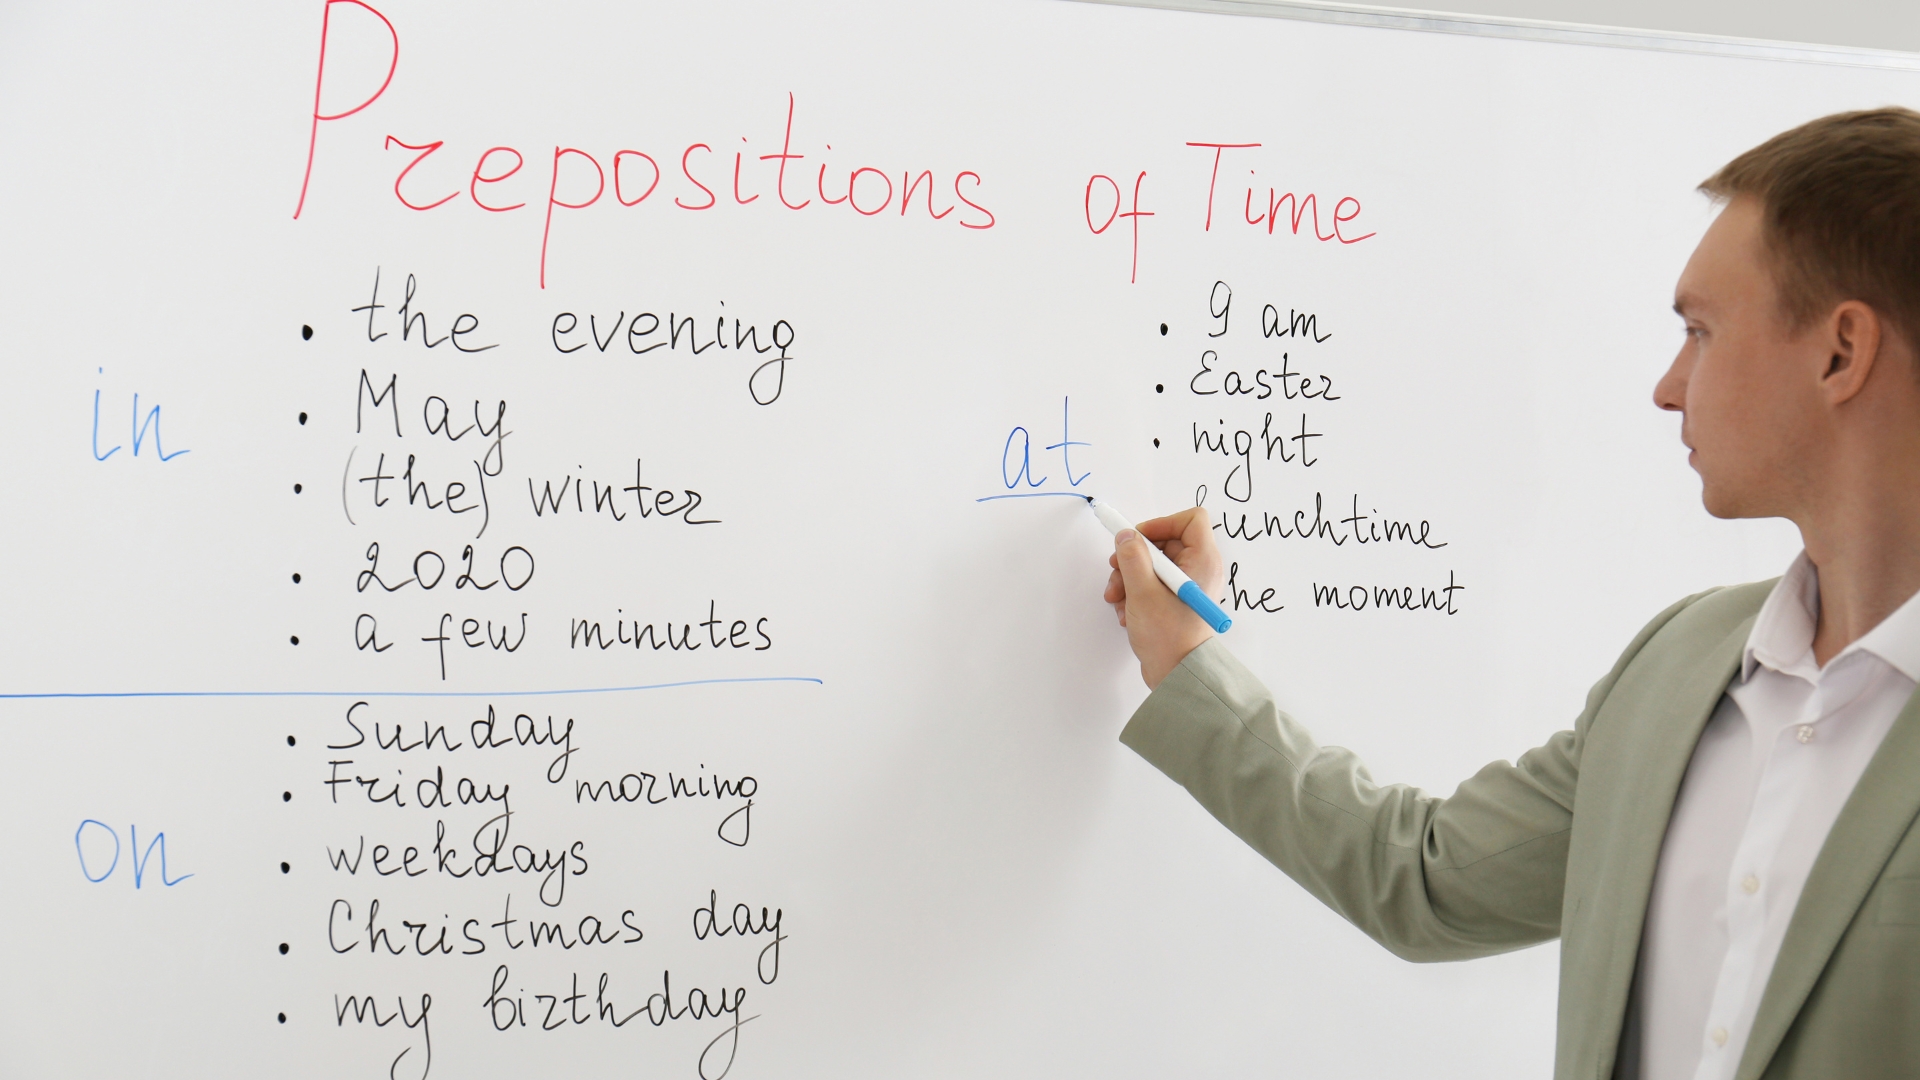 Prepositions of Time
in
• the evening
• May
• (the) winter
• 2020
• a few minutes
on
• Sunday
• Friday morning
• weekdays
• Christmas day
• my birthday
at
• 9 am
• Easter
• night
lunchtime
the moment